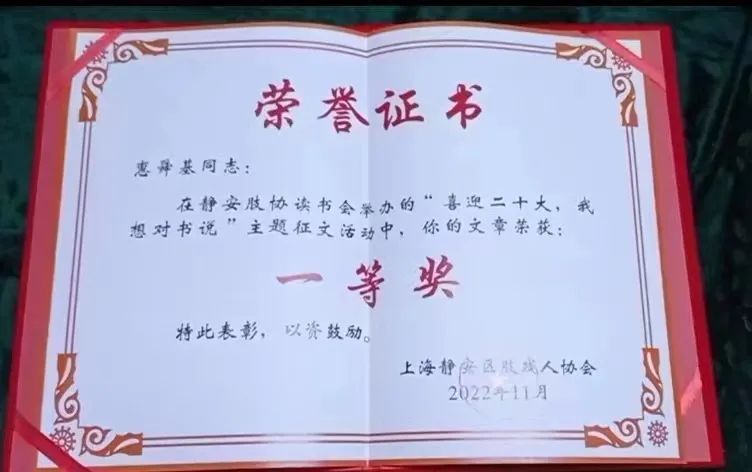 荣誉证书
惠舜基同志：
在静安肢协读书会举办的“喜迎二十大，我
想对书说”主题征文活动中，你的文章荣获：
一等奖
特此表彰，以资鼓励。
上海静安区肢残人协会
2022年11月